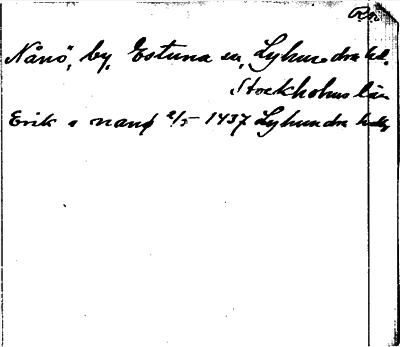 Rn
Nånö, by, Estuna sn, Lyhundra hd.
Stockholms län
Erik s nanø 2/5 1437 Lyhundra